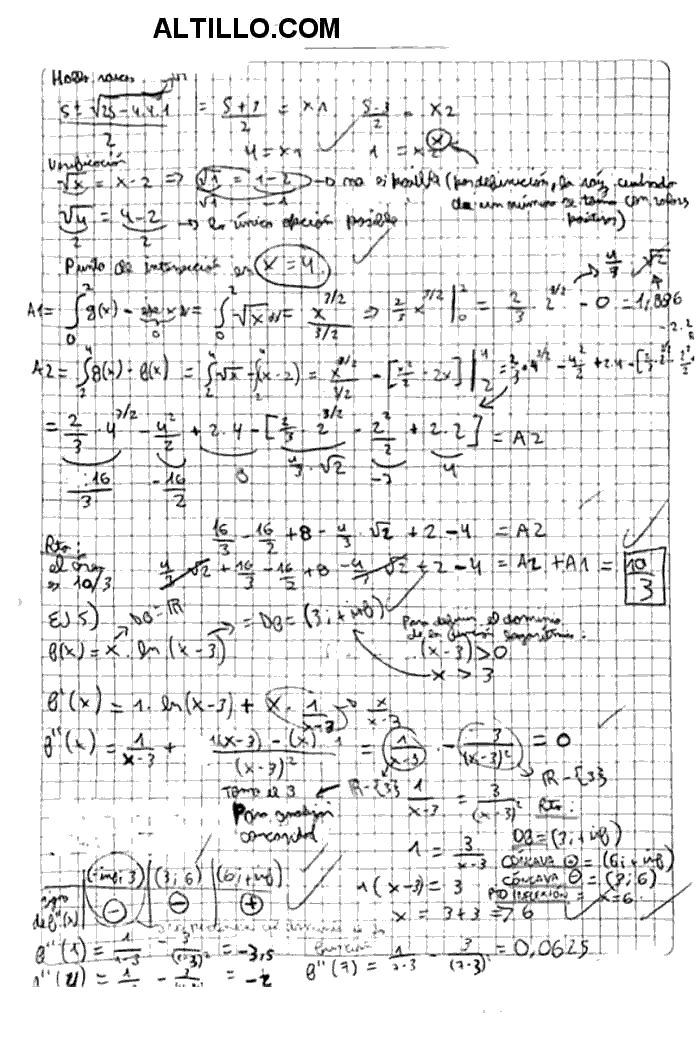 ALTILLO.COM
Hallo raíces
5 ± √25 - 4.4.1 / 2 = 5+3 / 2 = x1 5-3 / 2 = x2
4 = x1 1 = x2
Verificación
√x = x-2 => √1 = 1-2 → no es posible (por definición, la raíz cuadrada
√1 -1 de un número se toma con valores positivos)
√4 = 4-2 → la única opción posible
2 2
Punto de intersección en x = 4
A1 = ∫ g(x) - = ∫ √x = x^3/2 / 3/2 => 2/3 x^3/2 | = 2/3 . 2^3/2 - 0 = 1,886
A2 = ∫ g(x) - f(x) = ∫ √x - ∫(x-2) = x^3/2 / 3/2 - [x²/2 - 2x] | = 2/3 . 4^3/2 - 4²/2 + 2.4 -
= 2/3 . 4^3/2 - 4²/2 + 2.4 - [2/3 . 2^3/2 - 2²/2 + 2.2] = A2
16/3 -16/2 8 4/3 . √2 -2 4
16/3 - 16/2 + 8 - 4/3 . √2 + 2 - 4 = A2
Rta: el área es 10/3
4/3 √2 + 16/3 - 16/2 + 8 - 4/3 √2 + 2 - 4 = A2 + A1 = 10/3
EJ 5) Df = ℝ = Df = (3; +inf)
f(x) = x . ln (x-3)
Para definir el dominio
de la función logaritmo:
(x-3) > 0
x > 3
f'(x) = 1 . ln(x-3) + x . 1/x-3 → x/x-3
f''(x) = 1/x-3 + 1(x-3) - (x) . 1 / (x-3)² = 1/x-3 - 3/(x-3)² = 0
ℝ - {3} ℝ - {3}
Tomo el 3
Para analizar
concavidad
1/x-3 = 3/(x-3)²
1 = 3/x-3
1(x-3) = 3
x = 3+3 => 6
Rta:
Df = (3; +inf)
CÓNCAVA ⊕ = (6; +inf)
CÓNCAVA ⊖ = (3; 6)
PTO INFLEXIÓN = x=6
(-inf; 3) (3; 6) (6; +inf)
signo
de f''(x) ⊖ ⊖ ⊕
función
f''(1) = 1/1-3 - 3/(1-3)² = -3,5
f''(7) = 1/7-3 - 3/(7-3)² = 0,0625
f''(4) = = -2